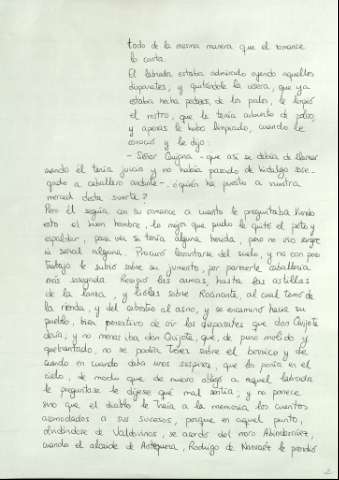 todo de la mesma manera que el romance
lo canta.
El labrador estaba admirado oyendo aquellos
disparates; y quitándole la visera, que ya
estaba hecha pedazos, de los palos, le limpió
el rostro, que le tenía cubierto de polvo,
y apenas le hubo limpiado, cuando le
conoció y le dijo:
- Señor Quijana - que así se debía de llamar
cuando él tenía juicio y no había pasado de hidalgo sose-
gado a caballero andante -. ¿quién ha puesto a vuestra
merced desta suerte?
Pero él seguía con su romance a cuanto le preguntaba. Viendo
esto el buen hombre, lo mejor que pudo le quitó el peto y
espaldar, para ver si tenía alguna herida, pero no vio sangre
ni señal alguna. Procuró levantarle del suelo, y no con poco
trabajo le subió sobre su jumento, por parecerle caballería
más sosegada. Recogió las armas, hasta las astillas
de la lanza, y liólas sobre Rocinante, al cual tomó de
la rienda, y del cabestro al asno, y se encaminó hacia su
pueblo, bien pensativo de oír los disparates que don Quijote
decía; y no menos iba don Quijote, que, de puro molido y
quebrantado, no se podía tener sobre el borrico y de
cuando en cuando daba unos suspiros, que los ponía en el
cielo, de modo que de nuevo obligó a aquel labrador
le preguntase le dijese qué mal sentía; y no parece
sino que el diablo le traía a la memoria los cuentos
acomodados a sus sucesos, porque en aquel punto,
olvidándose de Valdovinos, se acordó del moro Abindarráez,
cuando el alcaide de Antequera, Rodrigo de Narváez le prendió
2